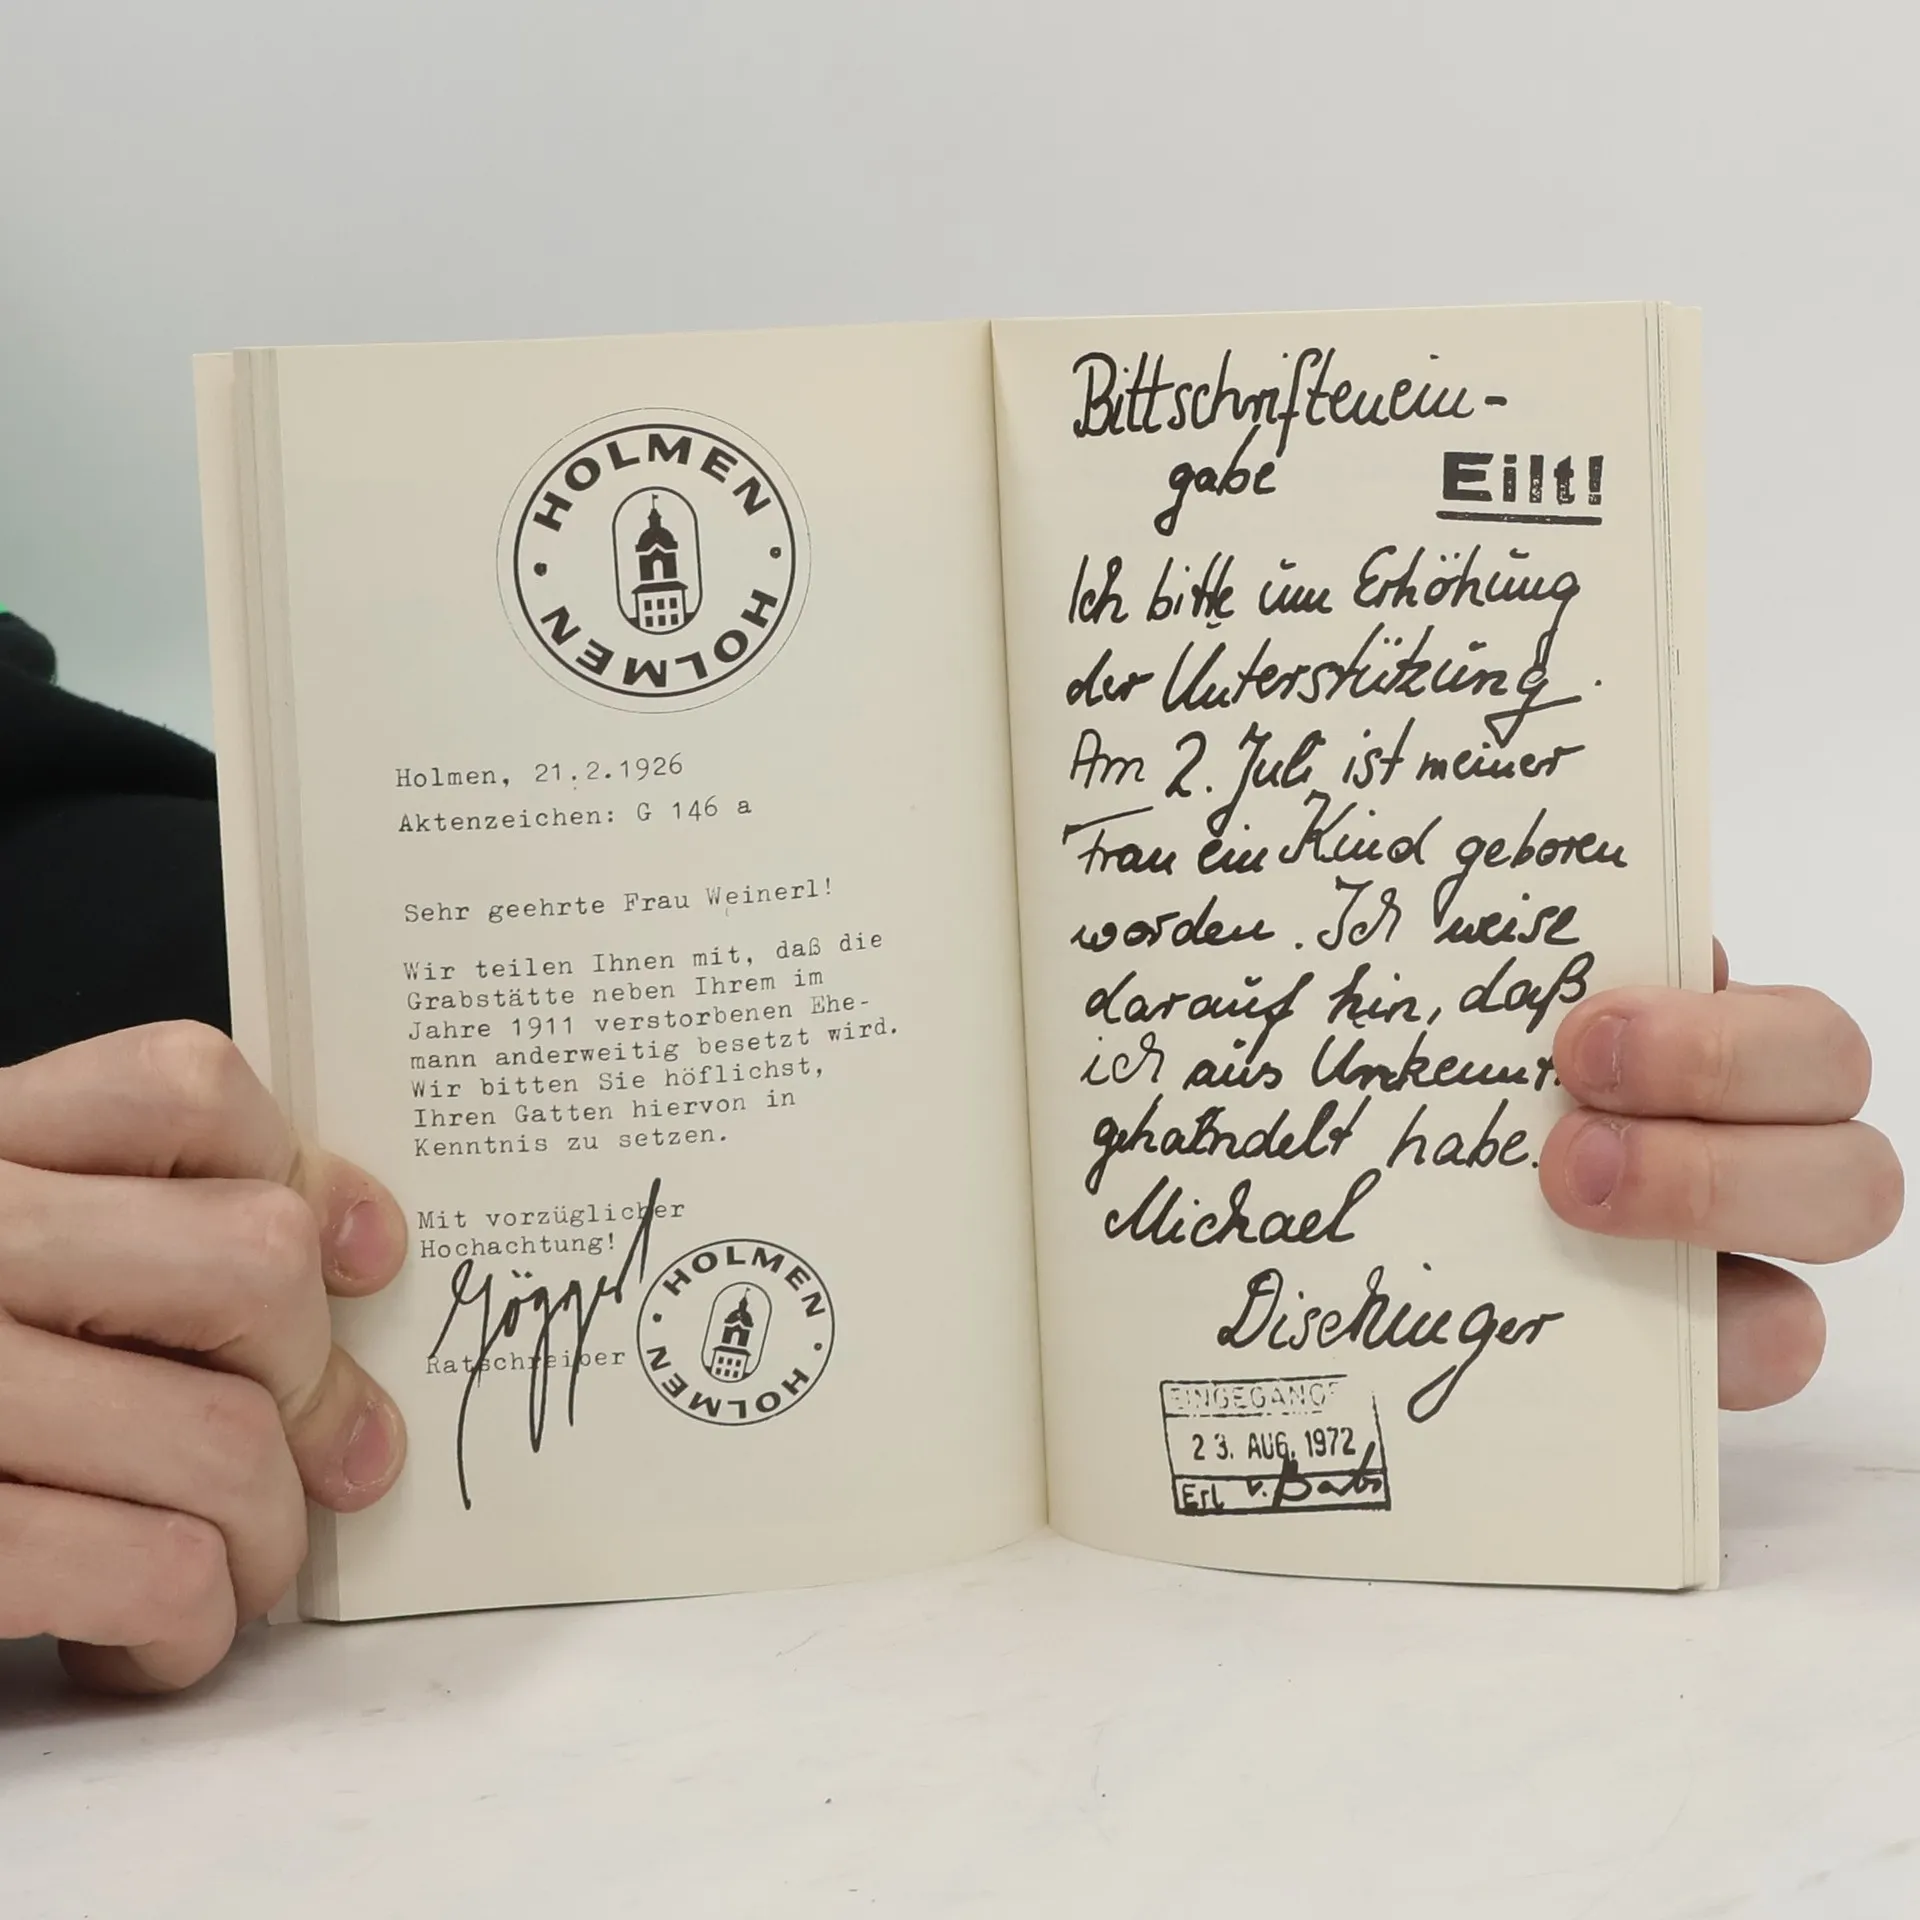 HOLMEN
HOLMEN
Holmen, 21.2.1926
Aktenzeichen: G 146 a
Sehr geehrte Frau Weinerl!
Wir teilen Ihnen mit, daß die
Grabstätte neben Ihrem im
Jahre 1911 verstorbenen Ehe-
mann anderweitig besetzt wird.
Wir bitten Sie höflichst,
Ihren Gatten hiervon in
Kenntnis zu setzen.
Mit vorzüglicher
Hochachtung!
Ratschreiber
HOLMEN
HOLMEN
Bittschriftenein-
gabe
Eilt!
Ich bitte um Erhöhung
der Unterstützung.
Am 2. Juli ist meiner
Frau ein Kind geboren
worden. Ich weise
darauf hin, daß
ich aus
gehandelt habe.
Michael
Dischinger
23. AUG. 1972
Erl v.